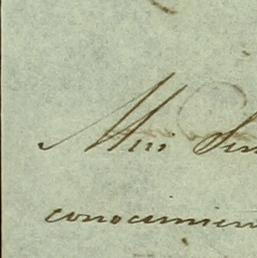 Mui Sen
conocimien